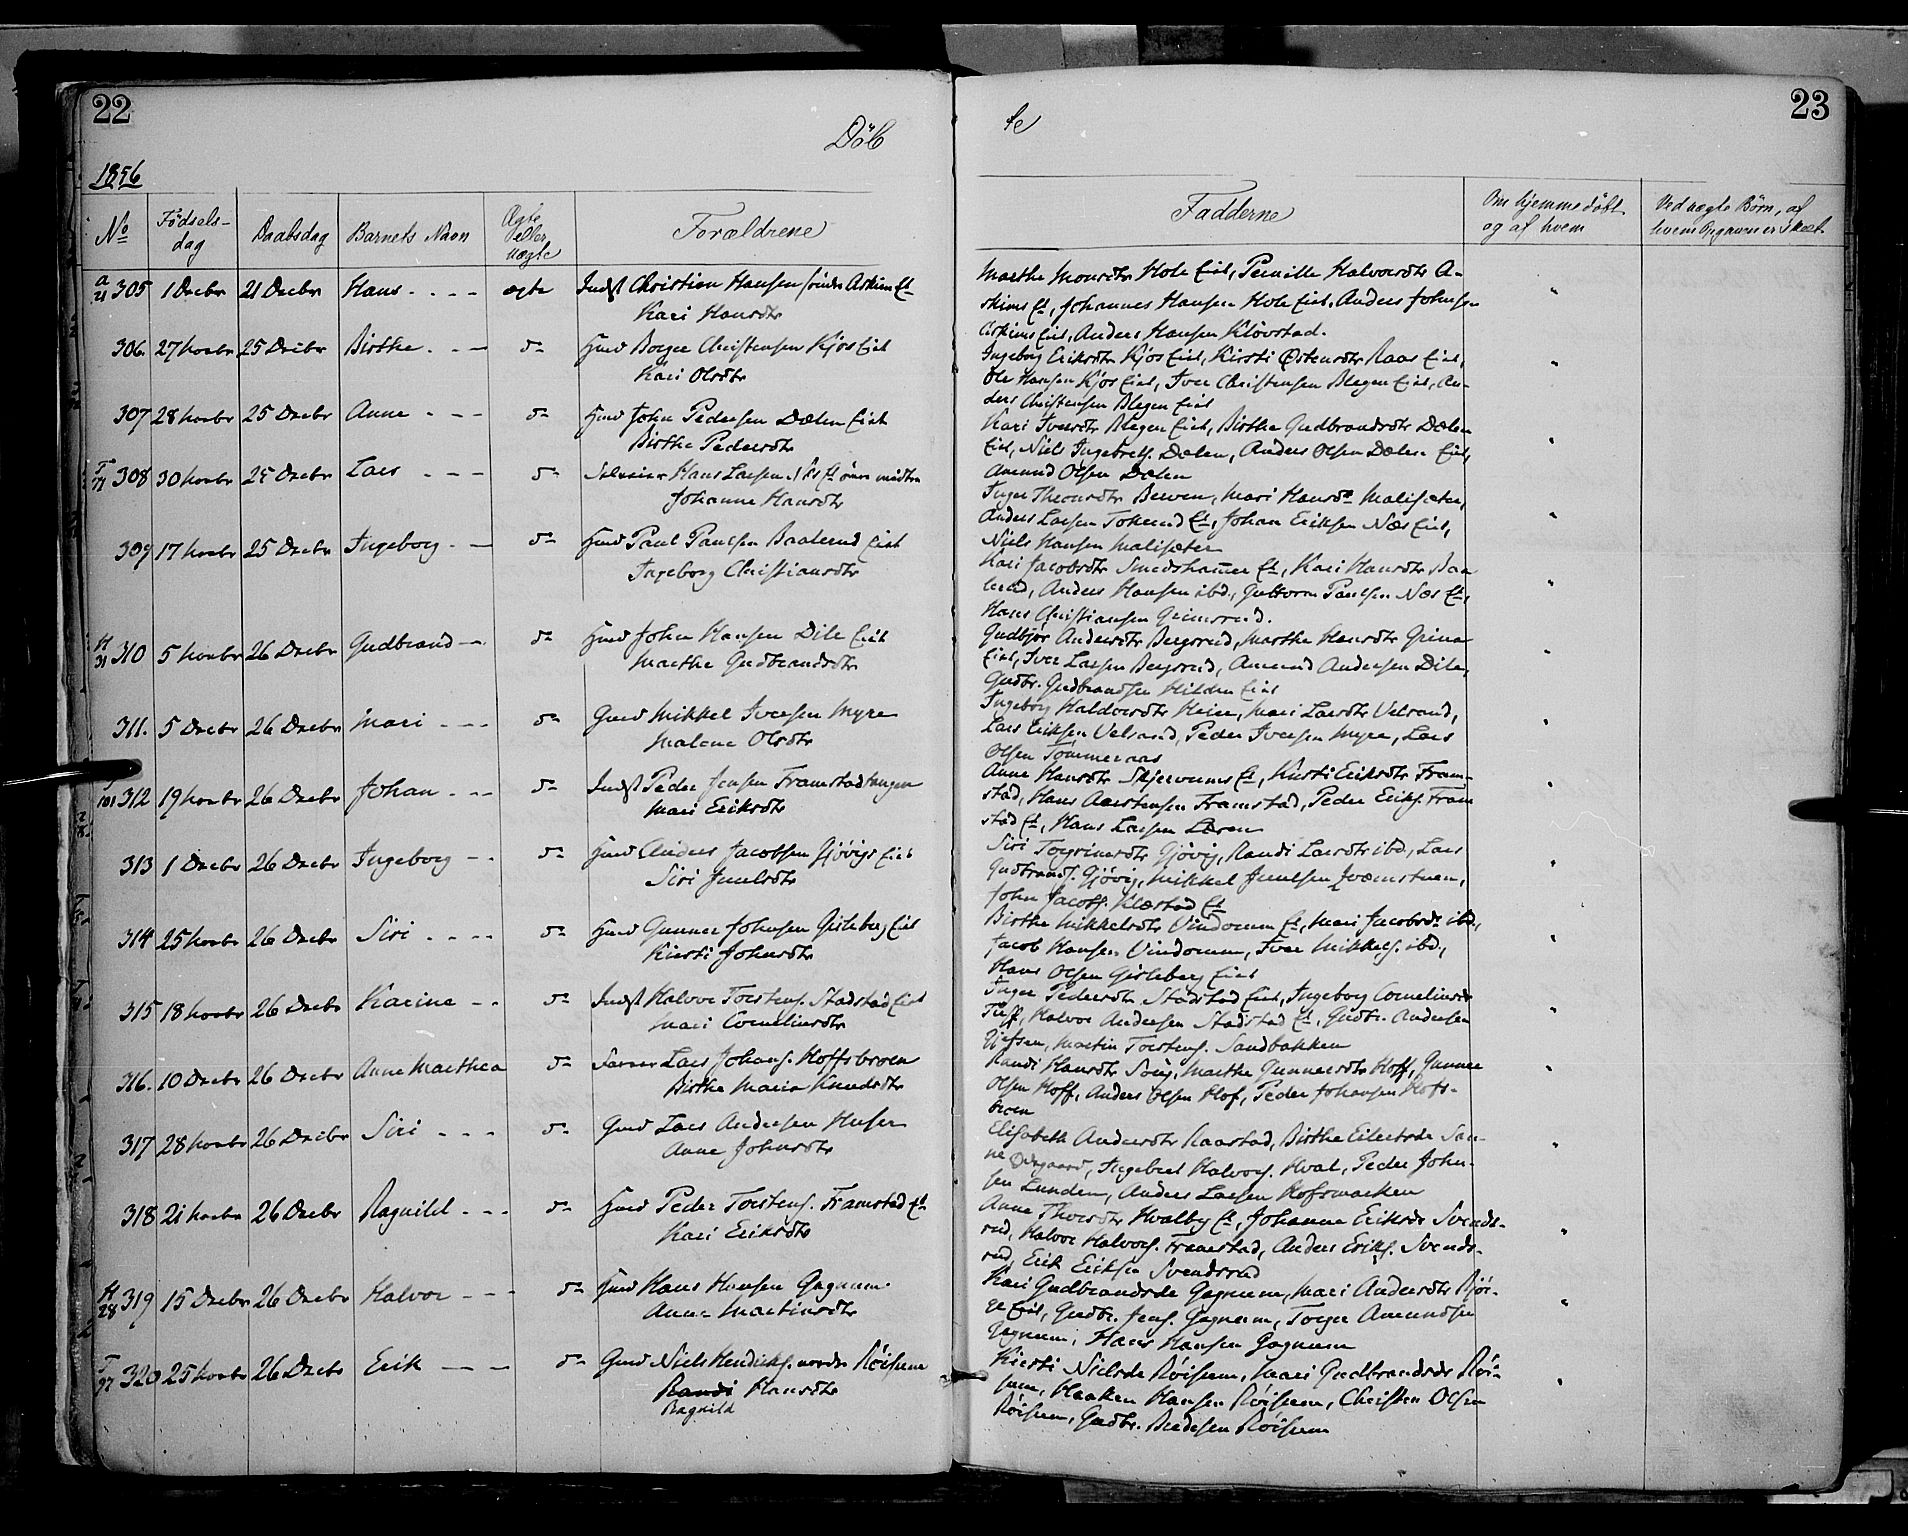 22
Döb
1856
No
Fødsels-
dag
Daabsdag
Barnets Navn
Ægte
eller
uægte
Forældrene
305 1 Decbr 21 Decbr Hans ægte Indst Christian Hansen søndre Askim Et
Kari Hansdtr
306. 27 Novbr 25 Decbr Birthe do Husmd Borger Christensen Kjøs Eiet
Kari Olsdtr
307 28 Novbr 25 Decbr Anne do Husmd John Pedersen Dælen Eiet
Birthe Pedersdtr
T 308 30 Novbr 25 Decbr Lars do Hans Larsen
Johanne Hansdtr
309 17 Novbr 25 Decbr Ingeborg do Husmd Paul Paulsen Baalerud Eiet
Ingeborg Christiansdtr
H 31 310 5 Novbr 26 Decbr Gudbrand do Husmd John Hansen Dile Eiet
Marthe Gudbrandsdtr
311. 5 Decbr 26 Decbr Mari do Gmd Mikkel Iversen Myre
Malene Olsdtr
101 312 19 Novbr 26 Decbr Johan do Indst Peder Jensen Framstadtangen
Mari Eriksdtr
313 1 Decbr 26 Decbr Ingeborg do Husmd Anders Jacobsen Gjøvigs Eiet
Siri Juulsdtr
314 25 Novbr 26 Decbr Siri do Husmd Gunner Johnsen Gisleberg Eiet
Kiersti Johnsdtr
315 18 Novbr 26 Decbr Karine do Indst Halvor Torstens. Stadstad Eiet
Mari Corneliusdtr
316. 10 Decbr 26 Decbr Anne Marthea do Lars Johans. Hoffsbroen
Birthe Maria Knudsdtr
317 28 Novbr 26 Decbr Siri do Gmd Lars Andersen Huser
Anne Johnsdtr
318 21 Novbr 26 Decbr Ragnild do Husmd Peder Torstens. Framstad Et
Kari Eriksdtr
H 28 319 15 Decbr 26 Decbr Halvor do Husmd Hans Hansen Gagnum
Anne Martinsdtr
T 97 320 25 Novbr 26 Decbr Erik do Gmd Niels Hendriks. nordre Røisum
Randi Hansdtr
Ragnild
te
23
Fadderne
Om hjemmedøbt
og af hvem
Ved uægte Børn, af
hvem Opgaven er skeet
Marthe Monsdtr Hole Eiet, Pernille Halvorsdtr A-
skims Et, Johannes Hansen Hole Eiet, Anders Johnsen
Askims Eiet, Anders Hansen Kløvstad.
Ingeborg Eriksdtr Kjøs Eiet, Kirsti Østensdtr Raas Eiet,
Ole Hansen Kjøs Eiet, Iver Christensen Blegen Eiet, An-
ders Christensen Blegen Eiet
Kari Iversdtr Blegen Eiet, Birthe Gudbrandsdtr Dælen
Eiet, Niels Ingebrets. Dælen, Anders Olsen Dælen Eiet,
Amund Olsen Dælen
Inger Thorsdtr Berven, Mari Hansdtr Malisæter,
Anders Larsen Tokerud Et, Johan Eriksen Næs Eiet,
Niels Hansen Malisæter
Kari Jacobsdtr Smedshammer Et, Kari Hansdtr Baa
lerud, Anders Hansen ibd., Guttorm Paulsen Næs Et,
Hans Christiansen Grimsrud.
Gudbjør Andersdtr Bergsrud, Marthe Hansdtr Grina
Eiet, Iver Larsen Bergsrud, Amund Andersen Dilen,
Gudbr. Gudbrandsen Hilden Eiet
Ingeborg Haldorsdtr Heier, Mari Larsdtr Velsand,
Lars Eriksen Velsand, Peder Iversen Myre, Lars
Olsen Tømmeraas
Anne Hansdtr Skjervums Et, Kirsti Eriksdtr Fram-
stad, Hans Aarstensen Framstad, Peder Eriks. Fram
stad Et, Hans Larsen Leeren
Siri Torgrimsdtr Gjøvig, Randi Larsdtr ibd., Lars
Gudbrands. Gjøvig, Mikkel Juulsen Jvamstuen,
John Jacobs. Klæstad Et
Birthe Mikkelsdtr Vindorum Et, Mari Jacobsdr ibd.,
Jacob Hansen Vindorum, Iver Mikkels. ibd.,
Hans Olsen Gisleberg Eiet
Inger Pedersdtr Stadstad Eiet, Ingeborg Corneliusdr
Tuff, Halvor Andersen Stadstad Et, Gudbr. Andersen
Gjefsen, Martin Torstens. Sandbakken
Randi Hansdtr Sørig, Marthe Gunnersdtr Hoff, Gunner
Olsen Hoff, Anders Olsen Hof, Peder Johansen Hofs-
broen
Elisabeth Andersdtr Raastad, Birthe Eilertsdr San-
ne Ødegaard, Ingebret Halvors. Hval, Peder John-
sen Lunden, Anders Larsen Hofsmarken
Anne Thorsdtr Hvalby Et, Johanne Eriksdr Svends-
rud, Halvor Halvors. Framstad, Anders Eriks. Svends-
rud, Erik Eriksen Svendsrud
Kari Gudbrandsdr Gagnum, Mari Andersdtr Bjør-
ge Eiet, Gudbr. Jens. Gagnum, Torger Amundsen
Gagnum, Hans Hansen Gagnum
Kiersti Nielsdr Røisum, Mari Gudbrandsdr Røi-
sum, Haaken Hansen Røisum, Christen Olsen
Røisum, Gudbr. Bredesen Røisum